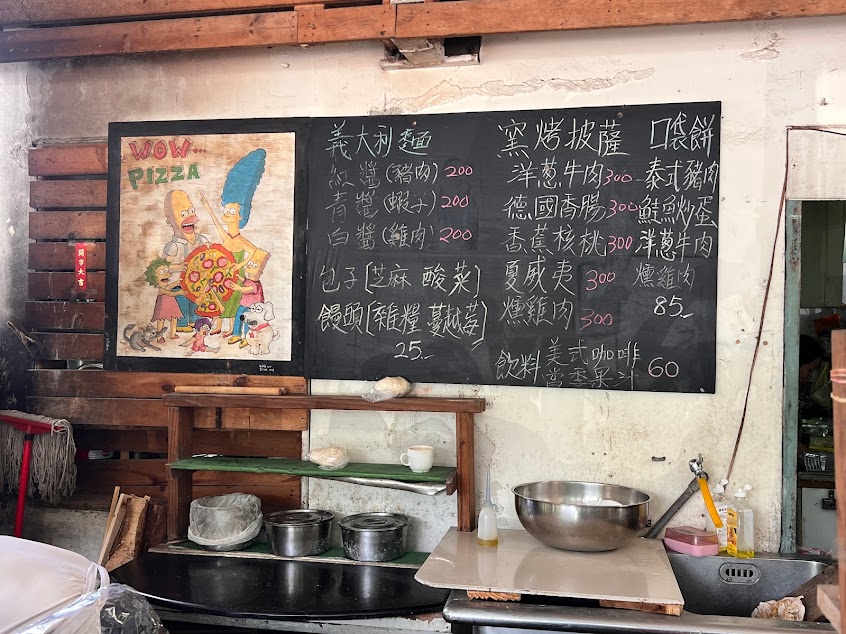 WOW...
PIZZA
開市大吉
義大利麵
紅醬(豬肉) 200
青醬(蝦子) 200
白醬(雞肉) 200
包子[芝麻 酸菜]
饅頭[雜糧 蔓越莓]
25.-
窯烤披薩
洋蔥牛肉 300
德國香腸 300
香蕉核桃 300
夏威夷 300
燻雞肉 300
口袋餅
泰式豬肉
鮭魚炒蛋
洋蔥牛肉
燻雞肉
85.-
飲料 美式咖啡
當季果汁 60